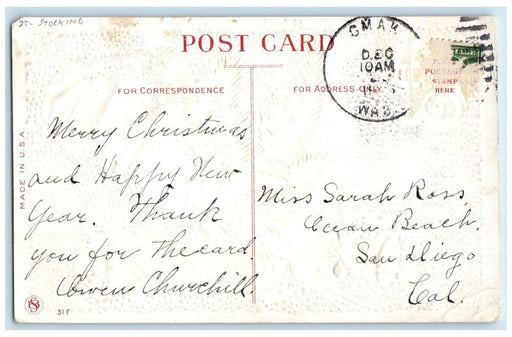 25- STOCKING
POST CARD
OMAK
DEC
10 AM
WAS.
POSTAGE
STAMP
HERE
FOR CORRESPONDENCE
FOR ADDRESS ONLY
MADE IN U.S.A.
Merry Christmas
and Happy New
Year. Thank
you for the card
Owen Churchill.
Miss Sarah Ross,
Ocean Beach,
San Diego
Cal.
31 F